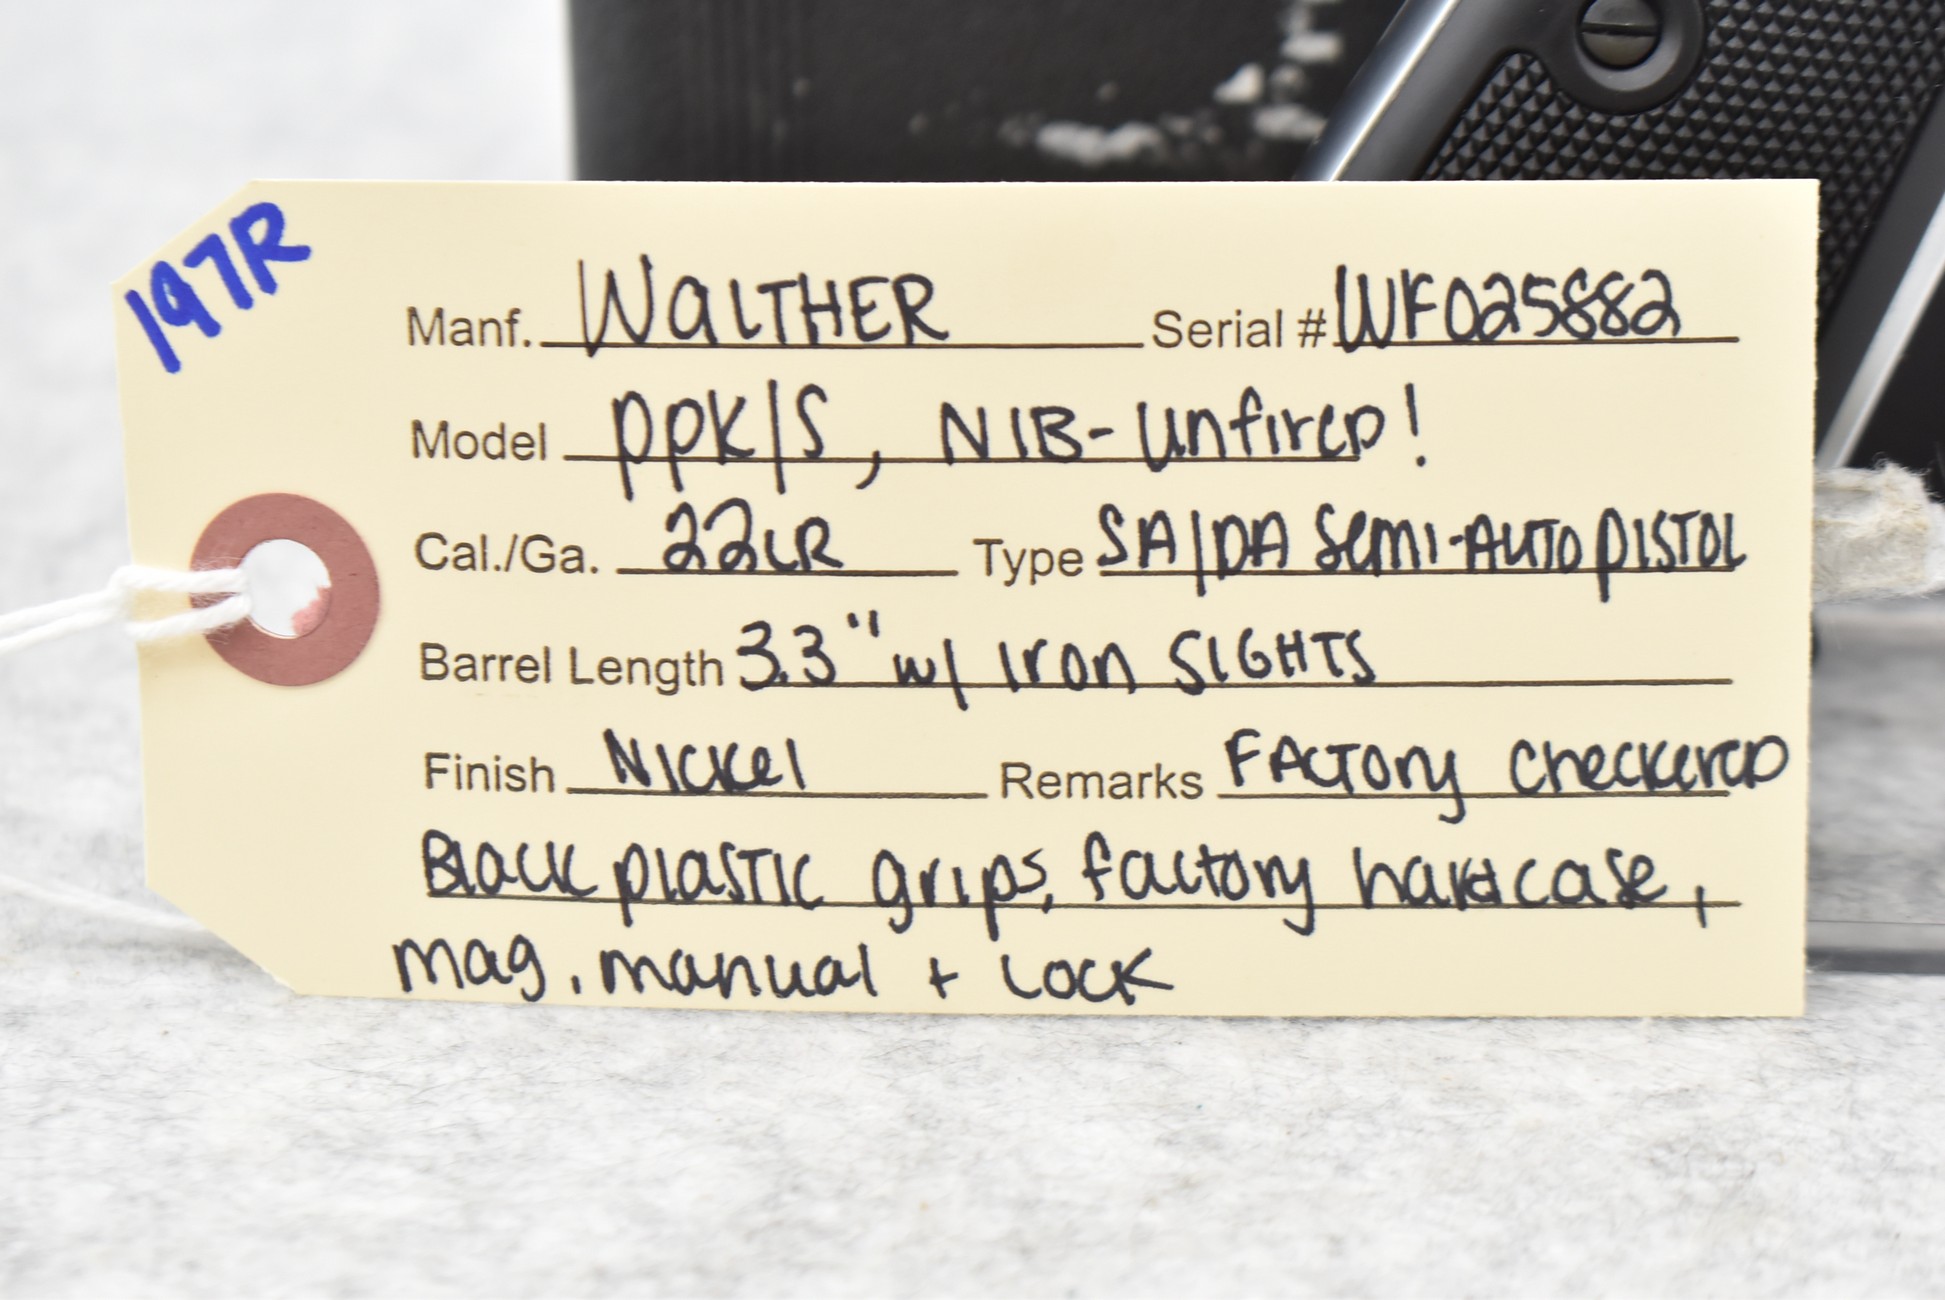 197R
Manf. WALTHER Serial # WF025882
Model PPK/S, NIB-Unfired!
Cal./Ga. 22LR Type SA/DA Semi-Auto Pistol
Barrel Length 3.3" w/ Iron Sights
Finish Nickel Remarks Factory Checkered
Black plastic grips, factory hard case,
mag, manual + Lock